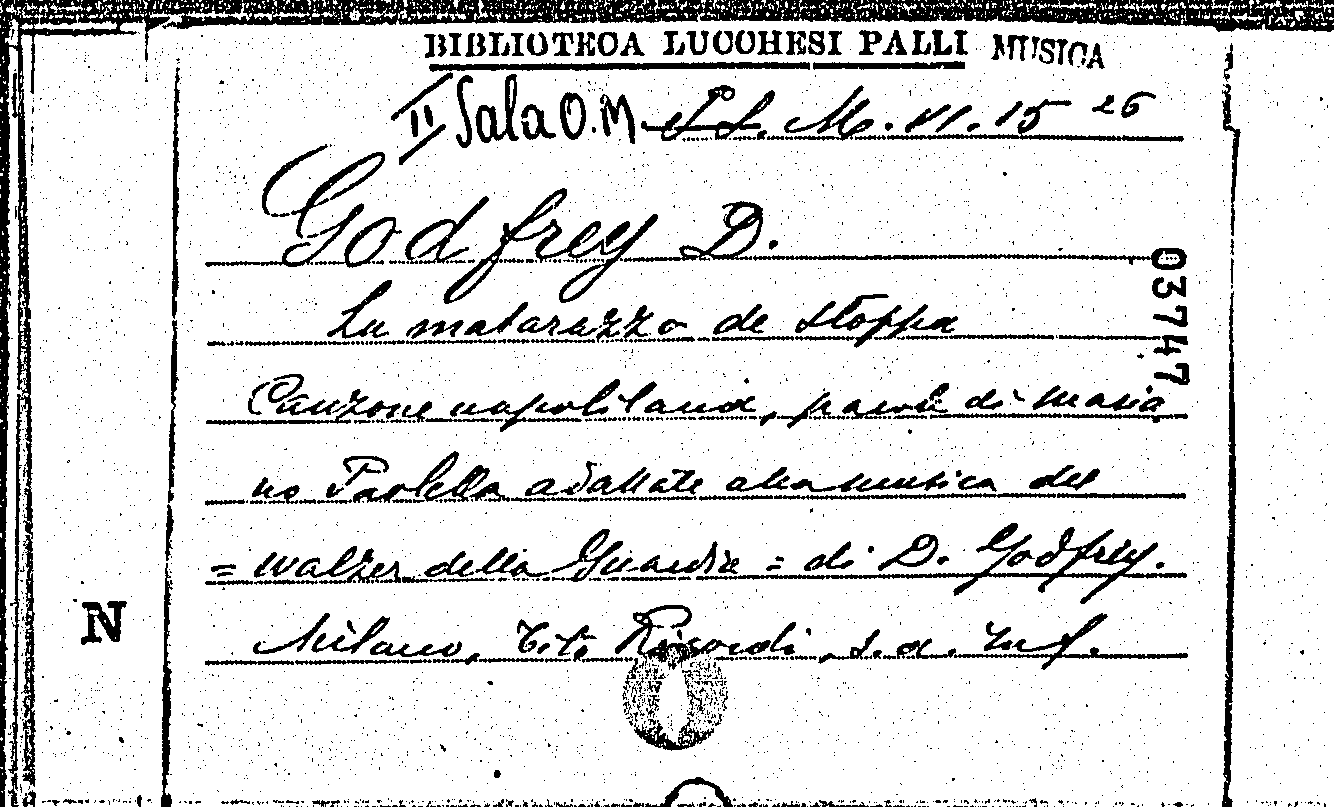 BIBLIOTECA LUCCHESI PALLI MUSICA
II Sala O.M. M. VI. 15 26
Godfrey D.
Lu matarazzo de stoppa
Canzone napolitana, parole di Maria
no Paolella adattate alla musica del
= walzer della Guardia = di D. Godfrey.
Milano, Tito Ricordi, s. a. in f.
03747
N